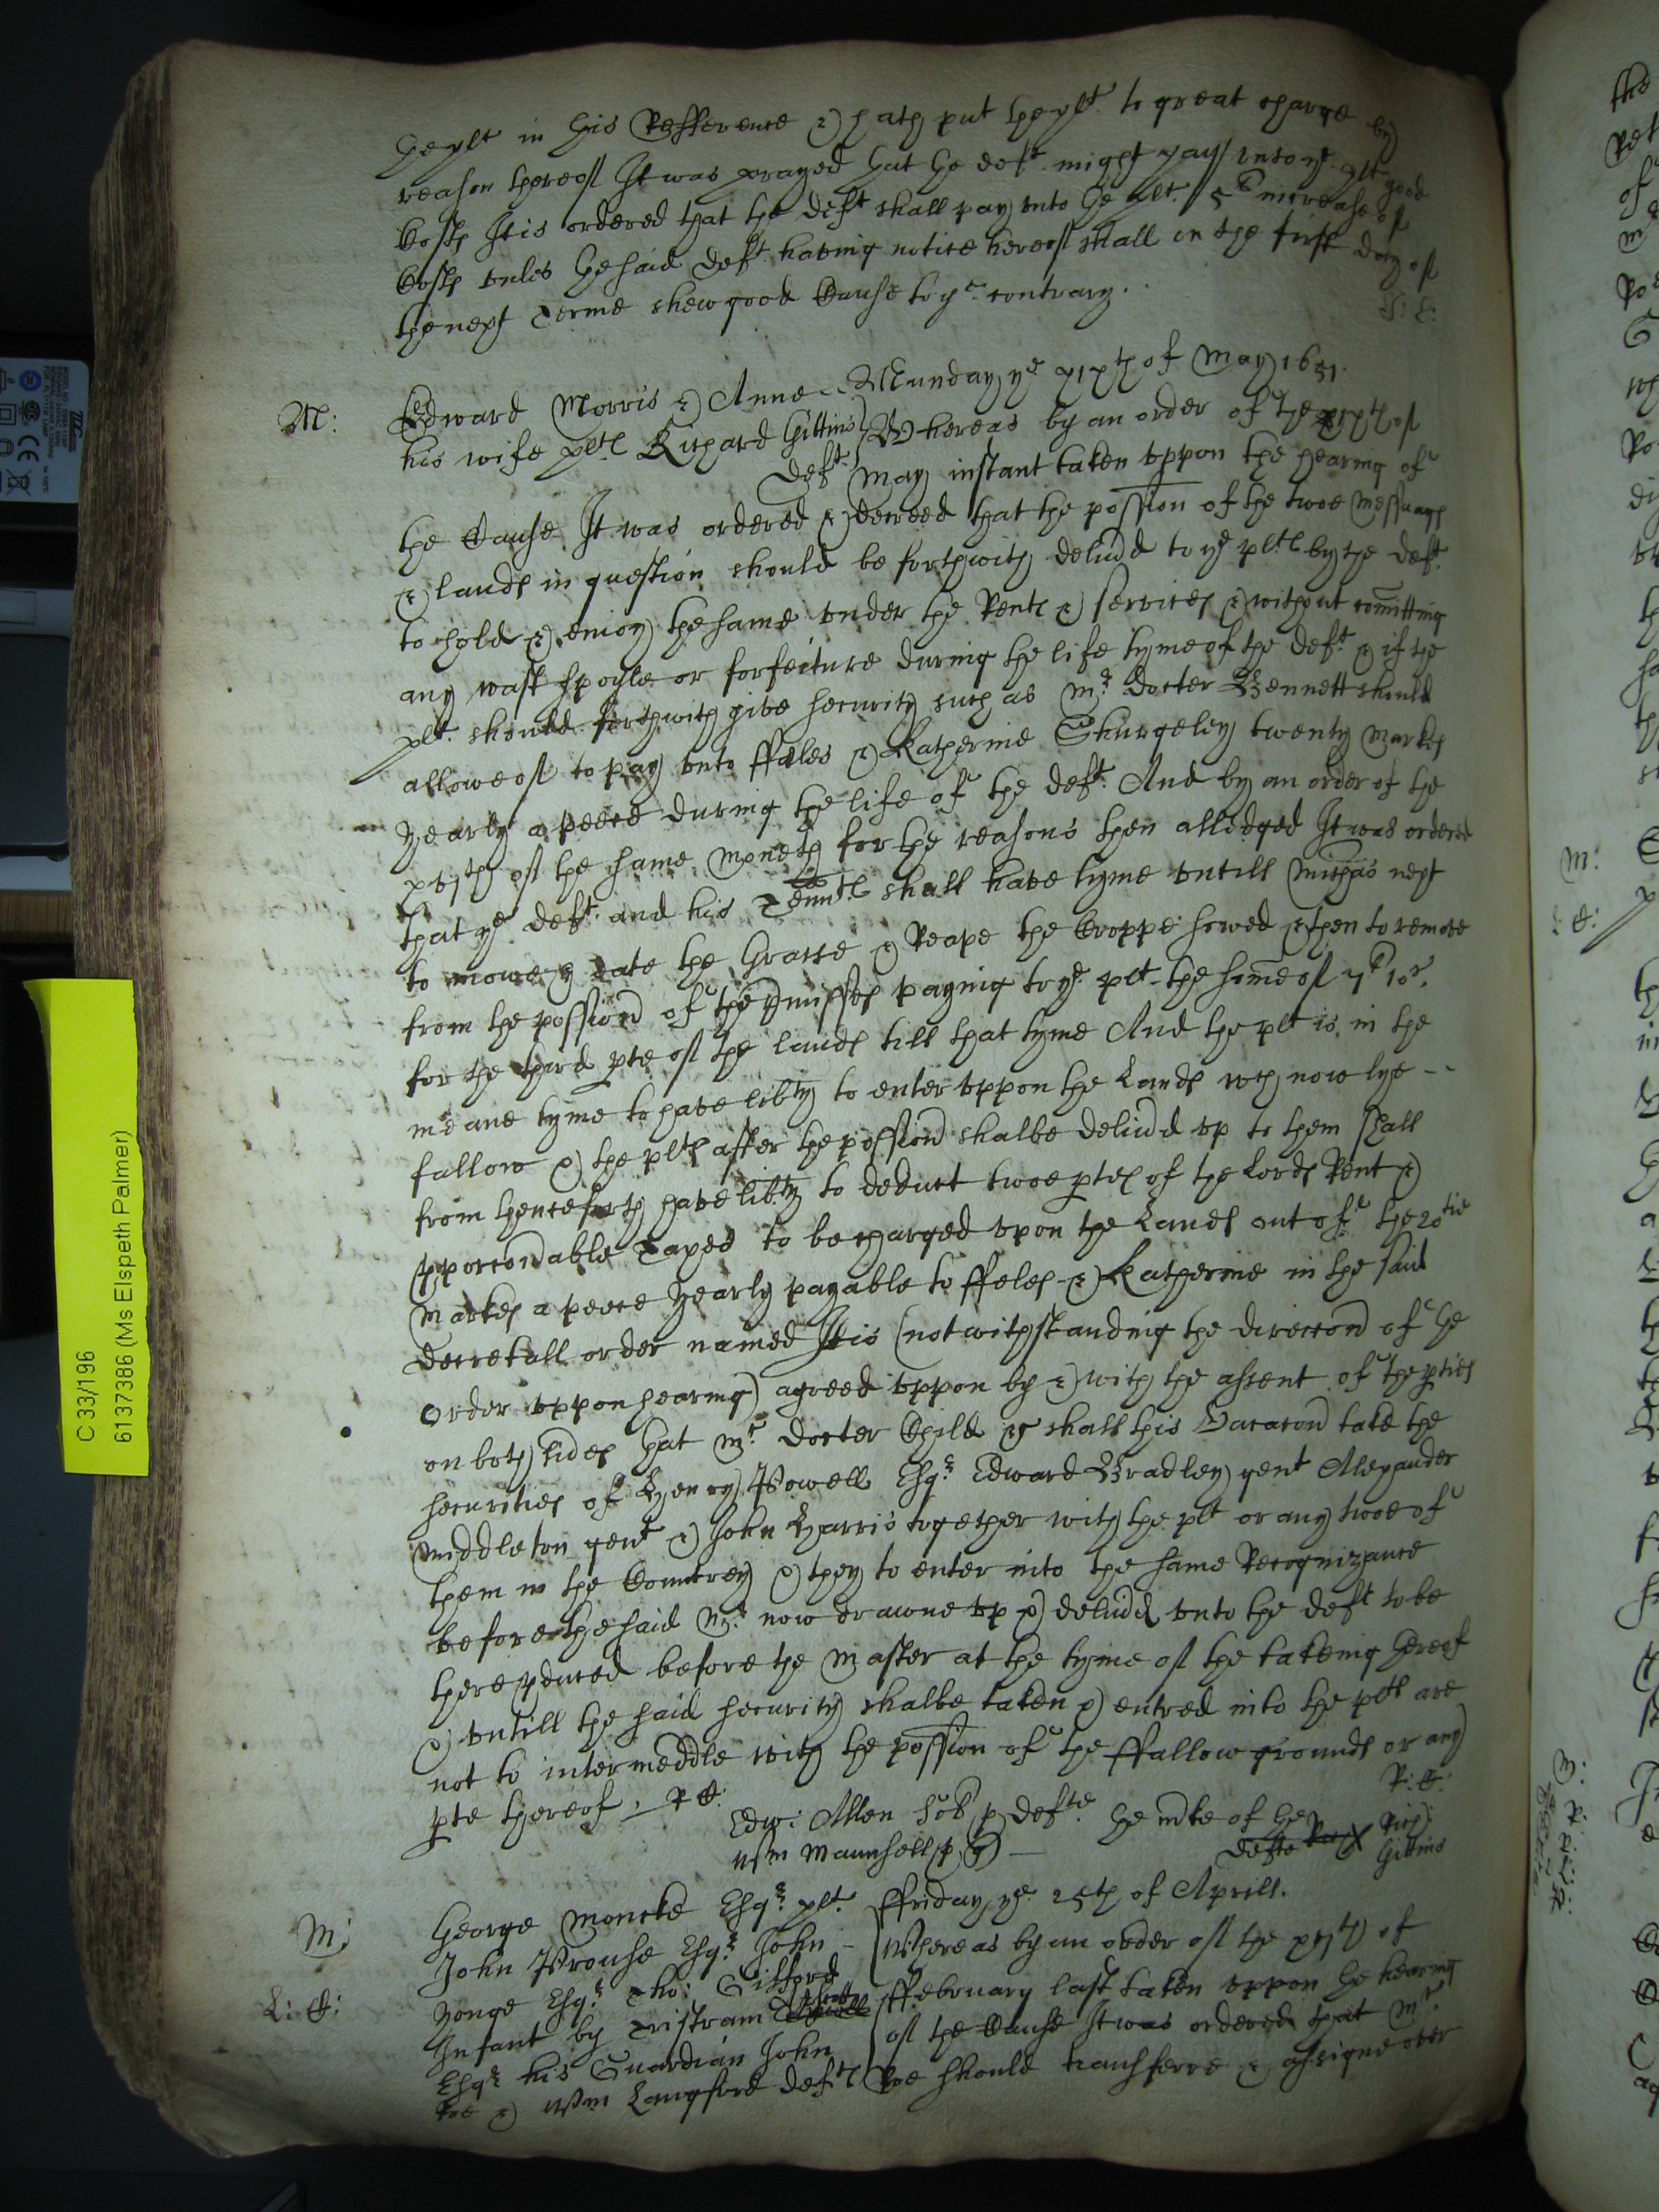 the plt in his Refference & hath put the plt to great charge by
reason thereof It was prayed that the deft. might pay unto ye plt good
Costs It is ordered that the deft shall pay unto the plt. 5li increase of
Costs unles the said deft. having notice hereof shall on the first day of
the next Terme shew good Cause to ye contrary.
M:
Edward Morris & Anne Munday ye xixth of May 1651.
his wife plts Richard Gittins Whereas by an order of the
deft. May instant taken uppon the hearing of
the Cause It was ordered & decreed that the possion of the twoe messuags
& lands in question should be forthwith delivd to ye plts by the deft.
to hold & enioy the same under the Rents & services & without comitting
any wast spoyle or forfeiture during the life tyme of the deft. & if the
plt. should forthwith give security such as Mr. Docter Bennett should
allowe of to pay unto ffeles & Katherine Shurgeley twenty Markes
yearly a peece during the life of the deft. And by an order of the
xvith of the same moneth for the reasons then alledged It was ordered
that ye deft. and his Tennts shall have tyme untill Michas next
to mowe & eate the Grasse & Reape the Croppe sowed & then to remove
from the possion of the pmisses paying to ye plt the some of 7li 10s.
for the third pte of the lands till that tyme And the plt is in the
meane tyme to have libty to enter uppon the Lands wch now lye --
fallow & the plts after the possion shalbe delivd up to them shall
from henceforth have libty to deduct twoe ptes of the Lords Rent &
pporconable Taxes to be charged upon the Lands out of the 20tie
Markes a peece yearly payable to ffeles & Katherine in the said
decretall order named It is (notwithstanding the direccon of the
order uppon hearing) agreed uppon by & with the assent of the pties
on both sides that Mr. Docter Child shall this Vacacon take the
securities of Henry Powell Esqr. Edward Bradley gent Alexander
Middleton gent & John Harris together with the plt or any twoe of
them in the Countrey & they to enter into the same Recognizance
before the said Mr. now drawne up & delivd unto the deft to be
there pduced before the Master at the tyme of the takeing thereof
& untill the said security shalbe taken & entred into the plts are
not to intermeddle with the possion of the ffallow grounds or any
pte thereof.
Edw: Allen Sol p defte the mke of the
Wm Maunsell p q defte Rich: Gittins
M:
L: C:
George Moncke Esqr. plt. ffriday ye 25th of Aprill.
John Prouse Esqr. John - Whereas by an order of the xvith of
Yonge Esqr. Tho: Gifford ffebruary last taken uppon the hearing
Infant by Tristram of the Cause It was ordered that Mr.
Esqr his Guardian John Roe should transferre & assigne over
Roe & Wm Langford defts
C 33/196
6137386 (Ms Elspeth Palmer)